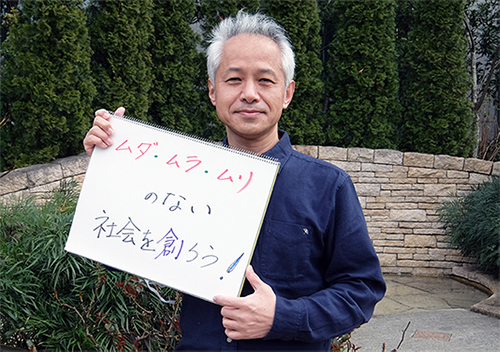 ムダ・ムラ・ムリ
のない
社会を創ろう!